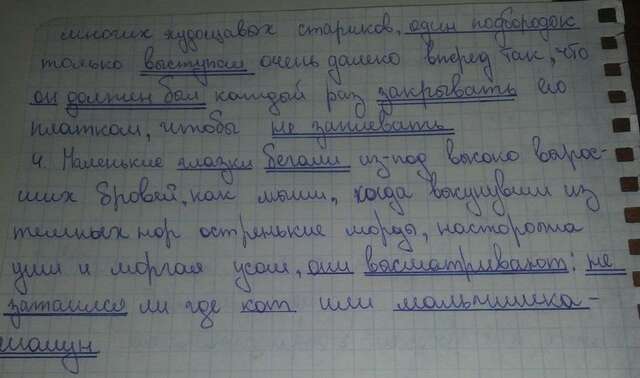 многих худощавых стариков, один подбородок
только выступал очень далеко вперед так, что
он должен был каждый раз закрывать его
платком, чтобы не заплевать
4. Маленькие глазки бегали из-под высоко вырос-
ших бровей, как мыши, когда высунувши из
темных нор остренькие морды, насторожа
уши и моргая усом, они высматривают: не
затаился ли где кот или мальчишка-
шалун